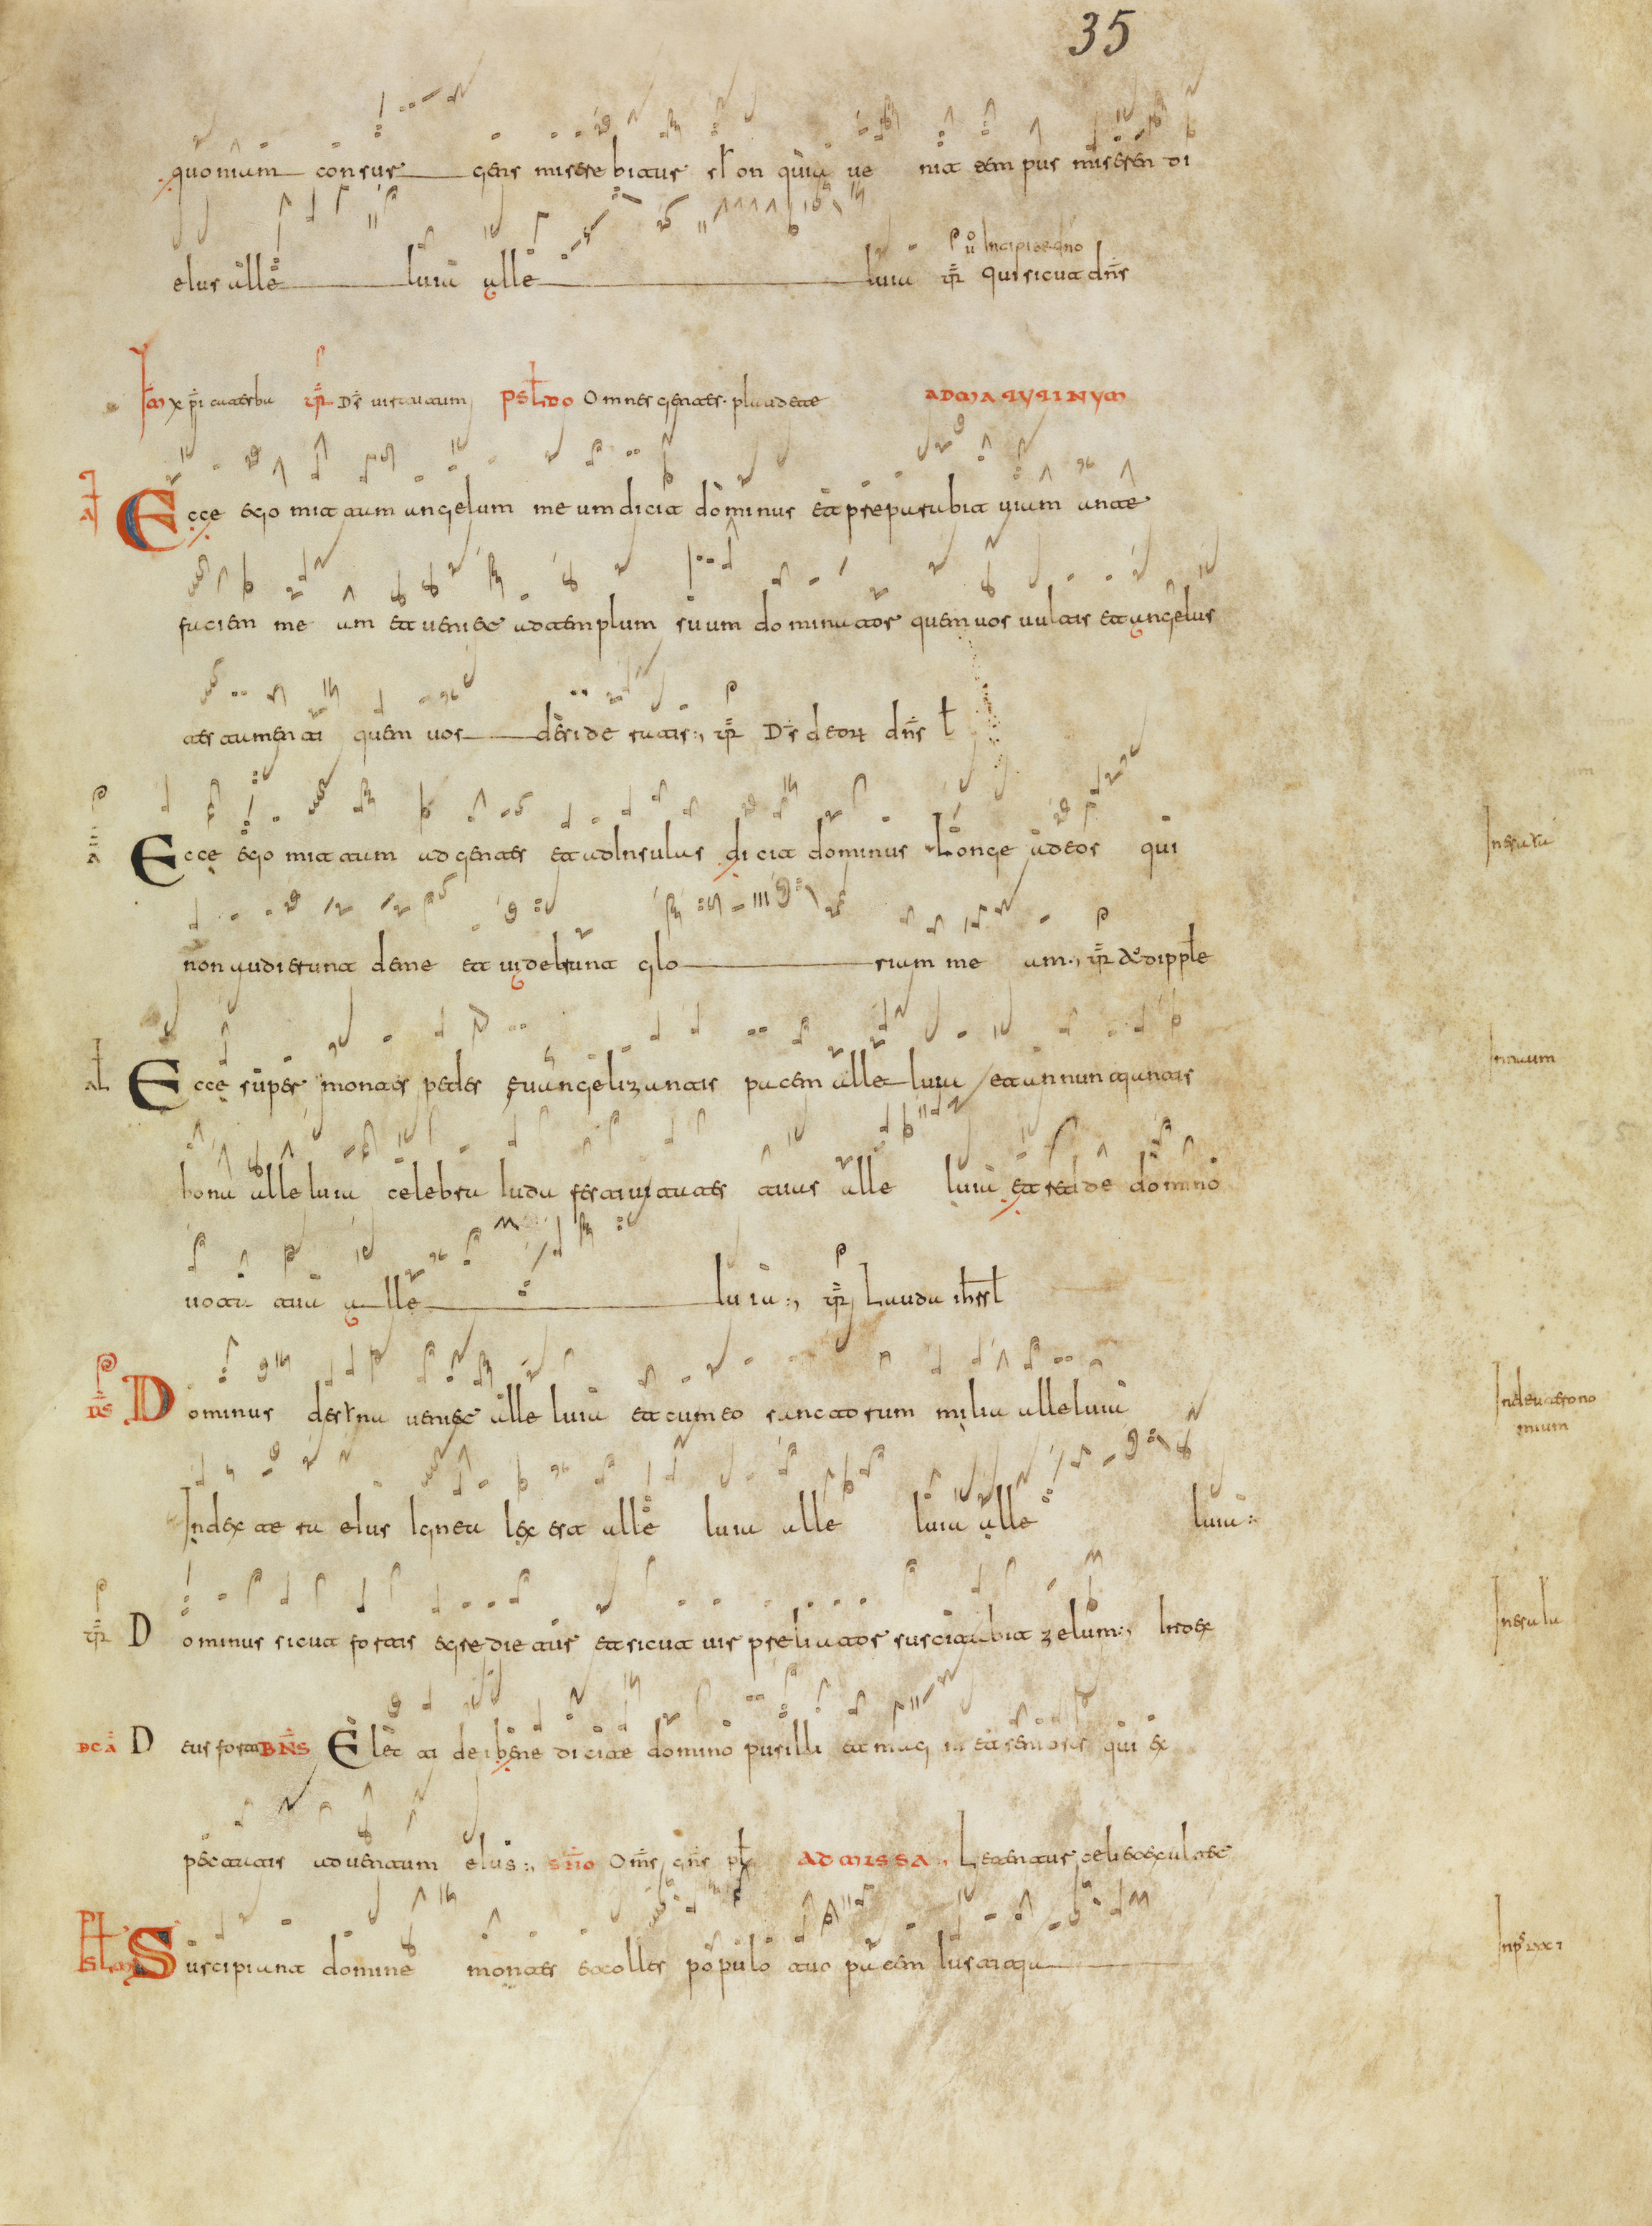 35
quoniam consurgens miserebitur sion quia venit tempus miserendi
eius alle luia alle luia Qui sicut dns
omnes gentes plaudite AD MATUTINUM
Ecce ego mittam angelum meum dicit dominus et preparabit viam ante
faciem meam et veniet ad templum suum dominator quem vos vultis et angelus
testamenti quem vos desideratis Ds deor dns
Ecce ego mittam ad gentes et ad insulas dicit dominus longe ad eos qui
In esaia
non audierunt de me et videbunt gloriam meam
Ecce super montes pedes evangelizantis pacem alleluia et annuntiantis
In naum
bona alleluia celebra iuda festivitates tuas alleluia et redde domino
vota tua alleluia Lauda ihrsl
Dominus de sina veniet alleluia et cum eo sanctorum milia alleluia
In deuterono
mium
In dextera eius ignea lex est alleluia alleluia alleluia
Dominus sicut fortis egredietur et sicut vir preliator suscitabit zelum
In esaia
Deus fortis BNS Electi dei benedicite domino pusilli et magni et seniores qui ex
pectatis adventum eius AD MISSA Letentur celi et exultet
Suscipiant domine montes et colles populo tuo pacem iustitia